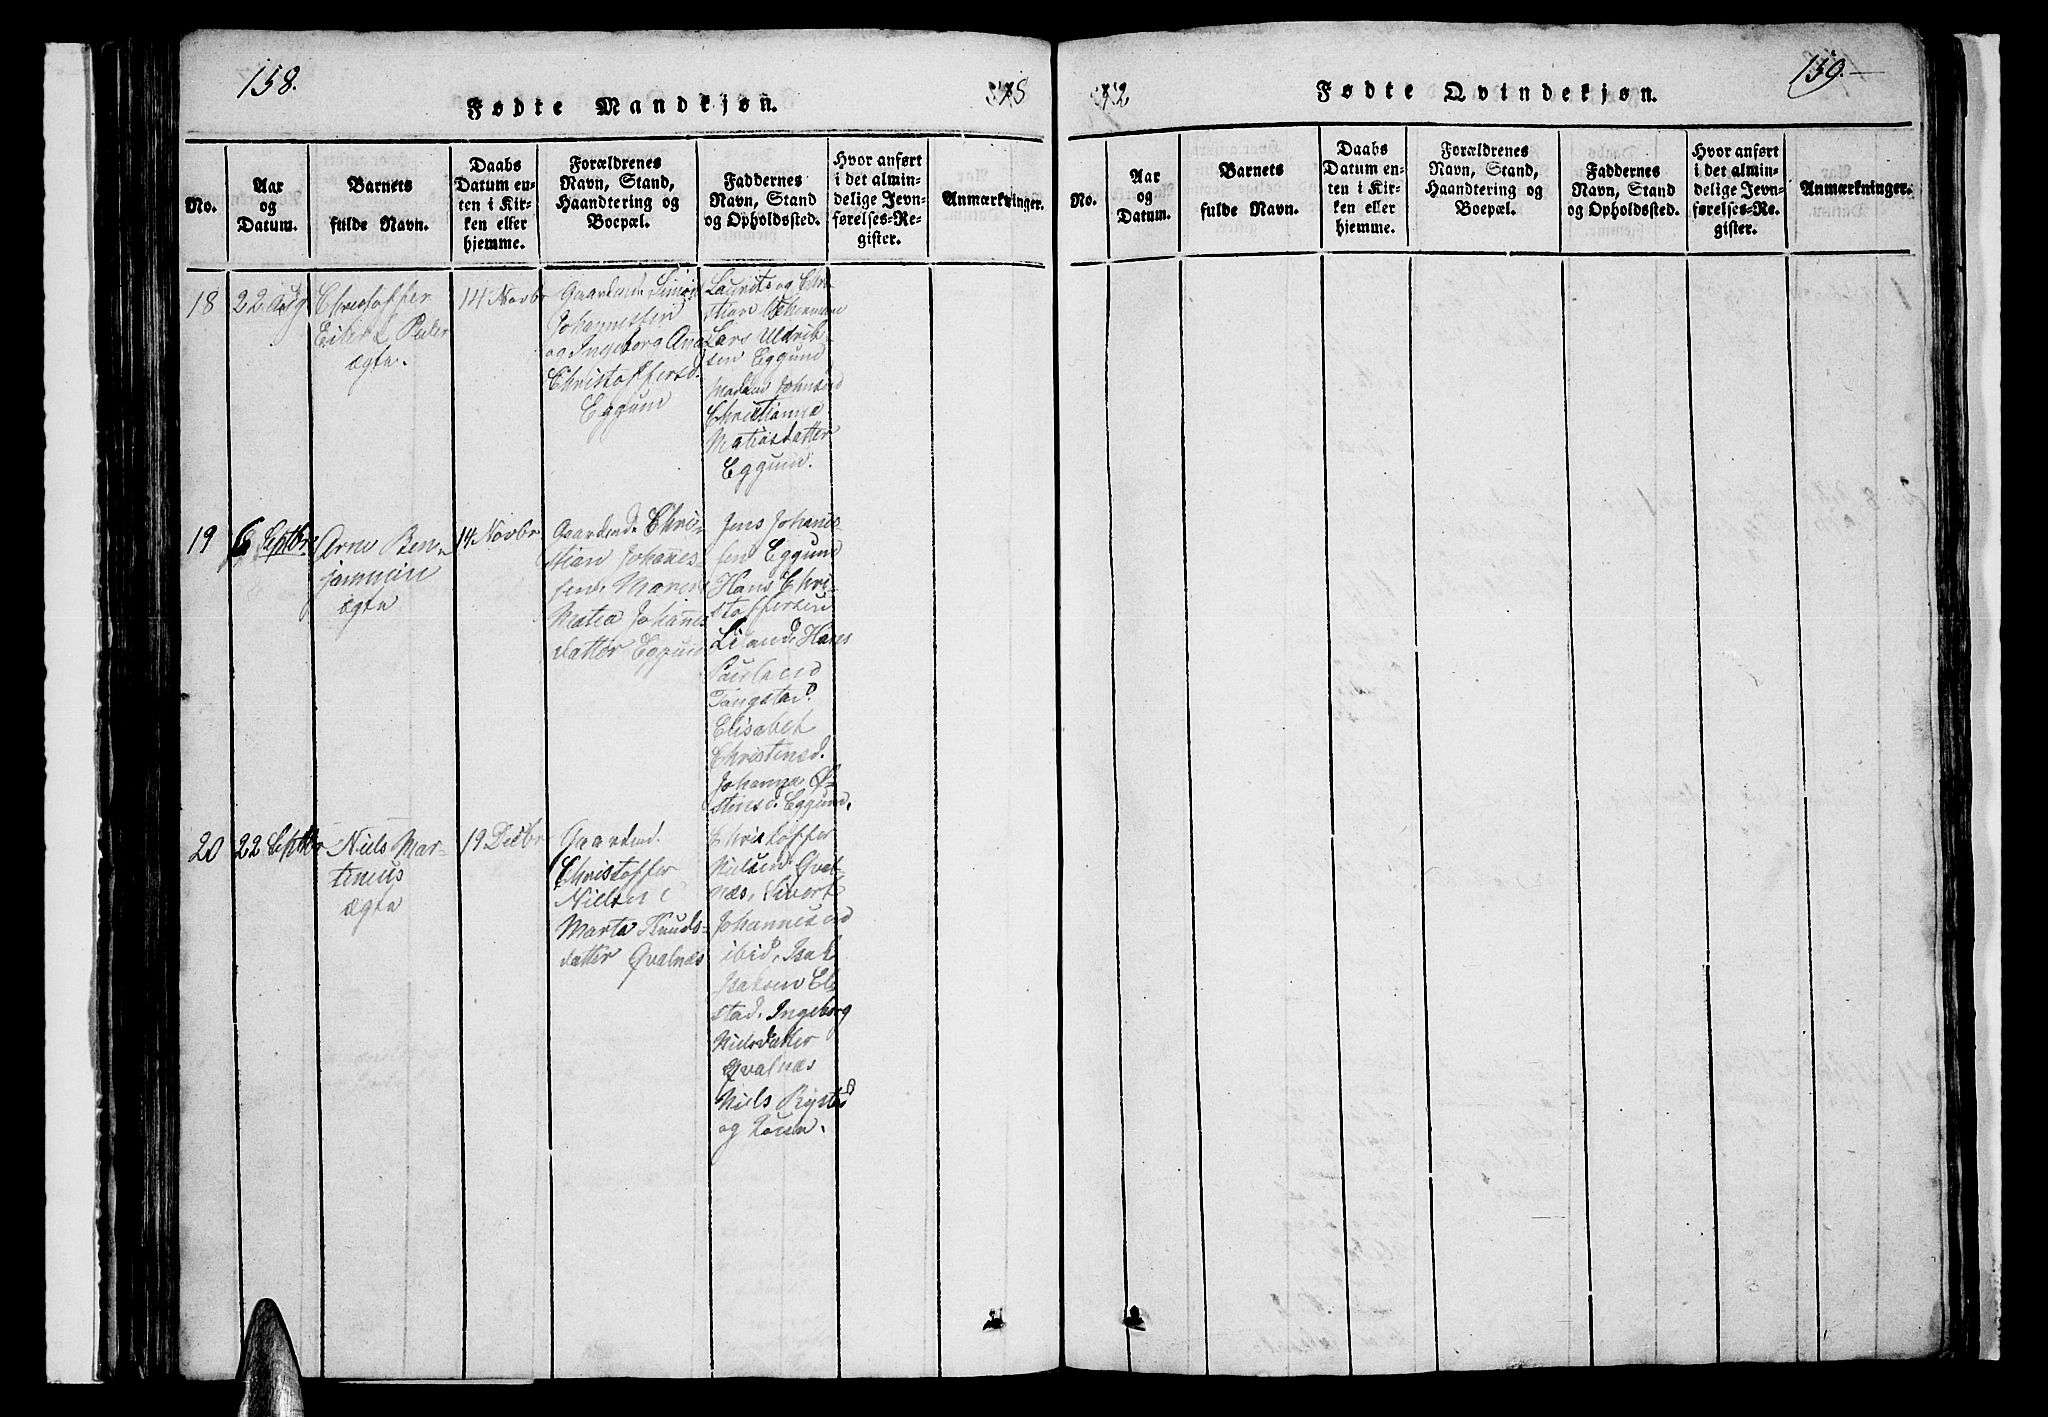 158.
Fødte Mandkjøn.
No.
Aar
og
Datum.
Barnets
fulde Navn.
Daabs
Datum en-
ten i Kir-
ken eller
hjemme.
Forældrenes
Navn, Stand,
Haandtering og
Boepæl.
Faddernes
Navn, Stand
og Opholdssted.
Hvor anført
i det almin-
delige Jevn-
førelses-Re-
gister.
Anmærkninger.
18
22 Aug
Christoffer
Eilert Peder
ægte.
14 Novbr
Gaardmd. Simon
Johannessen
og Ingeborg Ana
Christoffersd.
Eggum
Laurits og Chri-
stian
Lars Uldrik-
sen Eggum
Madam Johnsend
Christianna
Matiasdatter
Eggum.
19
6 Septbr
Arne Ben-
jamin
ægte
14 Novbr
Gaardmd. Chri-
stian Johannes-
sen, Maren
Matea Johannes
datter Eggum
Jens Johanes-
sen Eggum
Hans Chri-
stoffersen
Liland, Hans
Paulsen
Tangstad.
Elisabet
Christensd.
Johanna Ø-
stensd. Eggum.
20
22 Septbr
Niels Mar-
tinius
ægte
19 Decbr
Gaardmd.
Christoffer
Nielsen
Marta Knuds-
datter Qvalnæs
Christoffer
Nielsen Qval-
næs, Sivert
Johannesen
ibid, Isak
Isaksen El-
stad. Ingeborg
Nielsdatter
Qvalnæs
Niels Rystad
og
159.
Fødte Qvindekjøn.
No.
Aar
og
Datum.
Barnets
fulde Navn.
Daabs
Datum en-
ten i Kir-
ken eller
hjemme.
Forældrenes
Navn, Stand,
Haandtering og
Boepæl.
Faddernes
Navn, Stand
og Opholdssted.
Hvor anført
i det almin-
delige Jevn-
førelses-Re-
gister.
Anmærkninger.